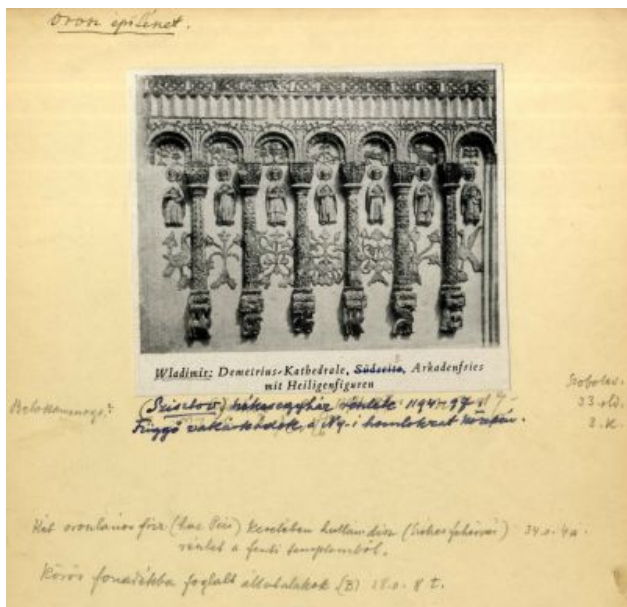 orosz épitészet.
Wladimir: Demetrius-Kathedrale, Südseite, Arkadenfries
mit Heiligenfiguren
székesegyház 1194-97
Függő vakárkádok a Ny-i homlokzat közepén.
33. old.
3. K.
Két oroszlános friz (has Pécs) keretében hullámdisz (Székesfehérvár) 34.o. 4a.
részlet a fenti templomból.
Körös fonadékba foglalt állatalakok (B) 28.o. 8 t.